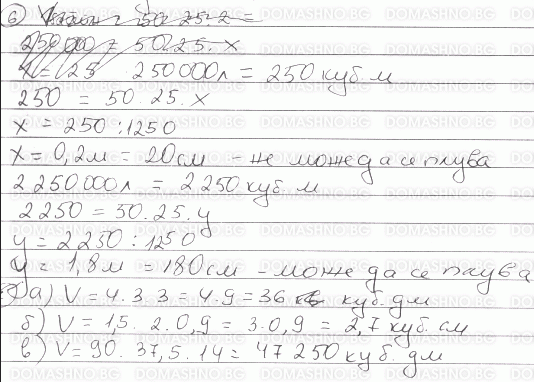 6) 50.25.2 =
250 000 = 50.25.x
x = 25 250 000 л = 250 куб. м
250 = 50.25.x
x = 250 : 1250
x = 0,2 м = 20 см - не може да се плува
2 250 000 л = 2 250 куб. м
2250 = 50.25.y
y = 2250 : 1250
y = 1,8 м = 180 см - може да се плува
а) V = 4.3.3 = 4.9 = 36 куб. дм
б) V = 1,5.2.0,9 = 3.0,9 = 2,7 куб. см
в) V = 90.37,5.14 = 47 250 куб. дм